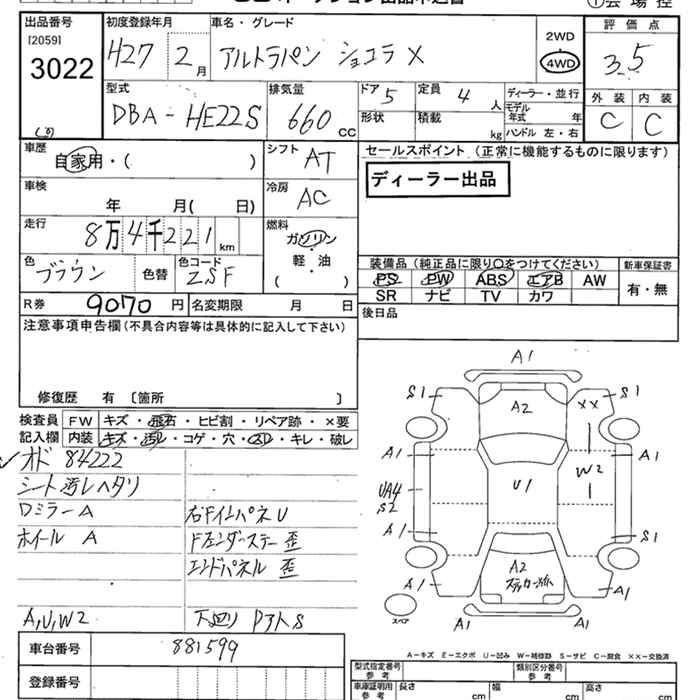 出品番号
[2059]
3022
初度登録年月
H27 2月
車名・グレード
アルトラパン ショコラ X
2WD
4WD
評価点
3.5
外装 内装
C C
型式
DBA-HE22S
排気量
660 CC
ドア 5
形状
定員 4 人
積載 kg
ディーラー・並行
モデル年式 年
ハンドル 左・右
車歴
自家用・( )
シフト
AT
セールスポイント (正常に機能するものに限ります)
ディーラー出品
車検
年 月( 日)
冷房
AC
走行
8万4千221km
燃料
ガソリン
・
軽・油
( )
色
ブラウン
色替
色コード
ZSF
装備品 (純正品に限り○をつけてください)
PS PW ABS エアB AW
SR ナビ TV カワ
新車保証書
有・無
R券 9070円
名変期限 月 日
後日品
注意事項申告欄(不具合内容等は具体的に記入して下さい)
修復歴 有〔箇所 〕
検査員
記入欄
FW キズ・飛石・ヒビ割・リペア跡・×要
内装 キズ・汚れ・コゲ・穴・スレ・キレ・破レ
オド 84222
シート汚レヘタリ
Dミラー A
ホイール A
右Fインパネ U
エンドパネル 歪
A,U,W2
車台番号 881599
登録番号
A1
S1
A2
XX
S1
A1
A1
W2
UA4
S2
U1
A1
S1
A2
A1
A1
A1
スペア
A-キズ E-エクボ U-凹み W-補修跡 S-サビ C-腐食 ××-交換済
型式指定番号
参考
類別区分番号
参考
車庫証明用
参考
長さ cm
幅 cm
高さ cm